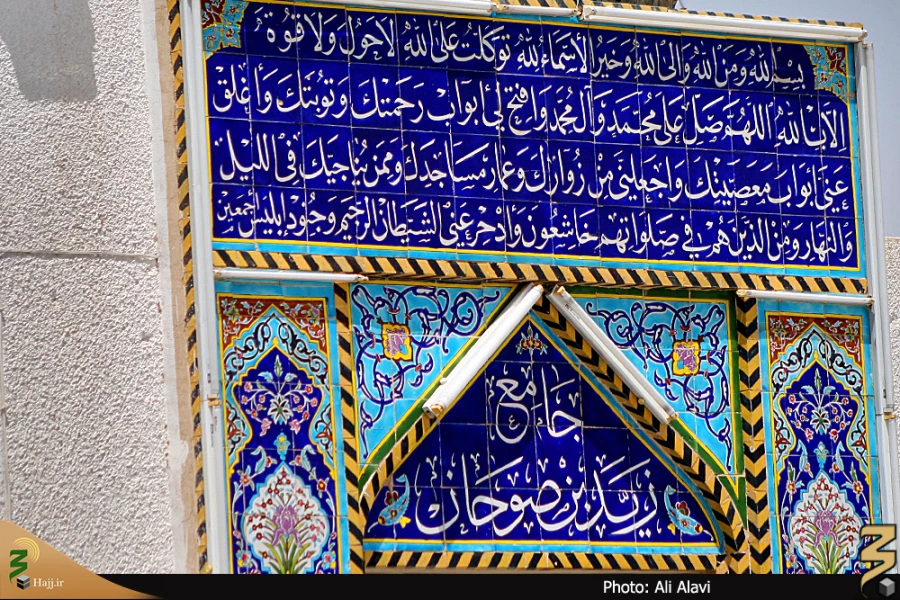 بسم الله ومن الله والى الله وخير الأسماء لله توكلت على الله لاحول ولا قوة
الا بالله اللهم صل على محمد وآل محمد وافتح لي أبواب رحمتك وتوبتك وأغلق
عني أبواب معصيتك واجعلني من زوارك وعمار مساجدك وممن يناجيك في الليل
والنهار ومن الذين هم في صلواتهم خاشعون وادحر عني الشيطان الرجيم وجنود ابليس اجمعين
جامع
زيد بن صوحان
Hajj.ir
Photo: Ali Alavi